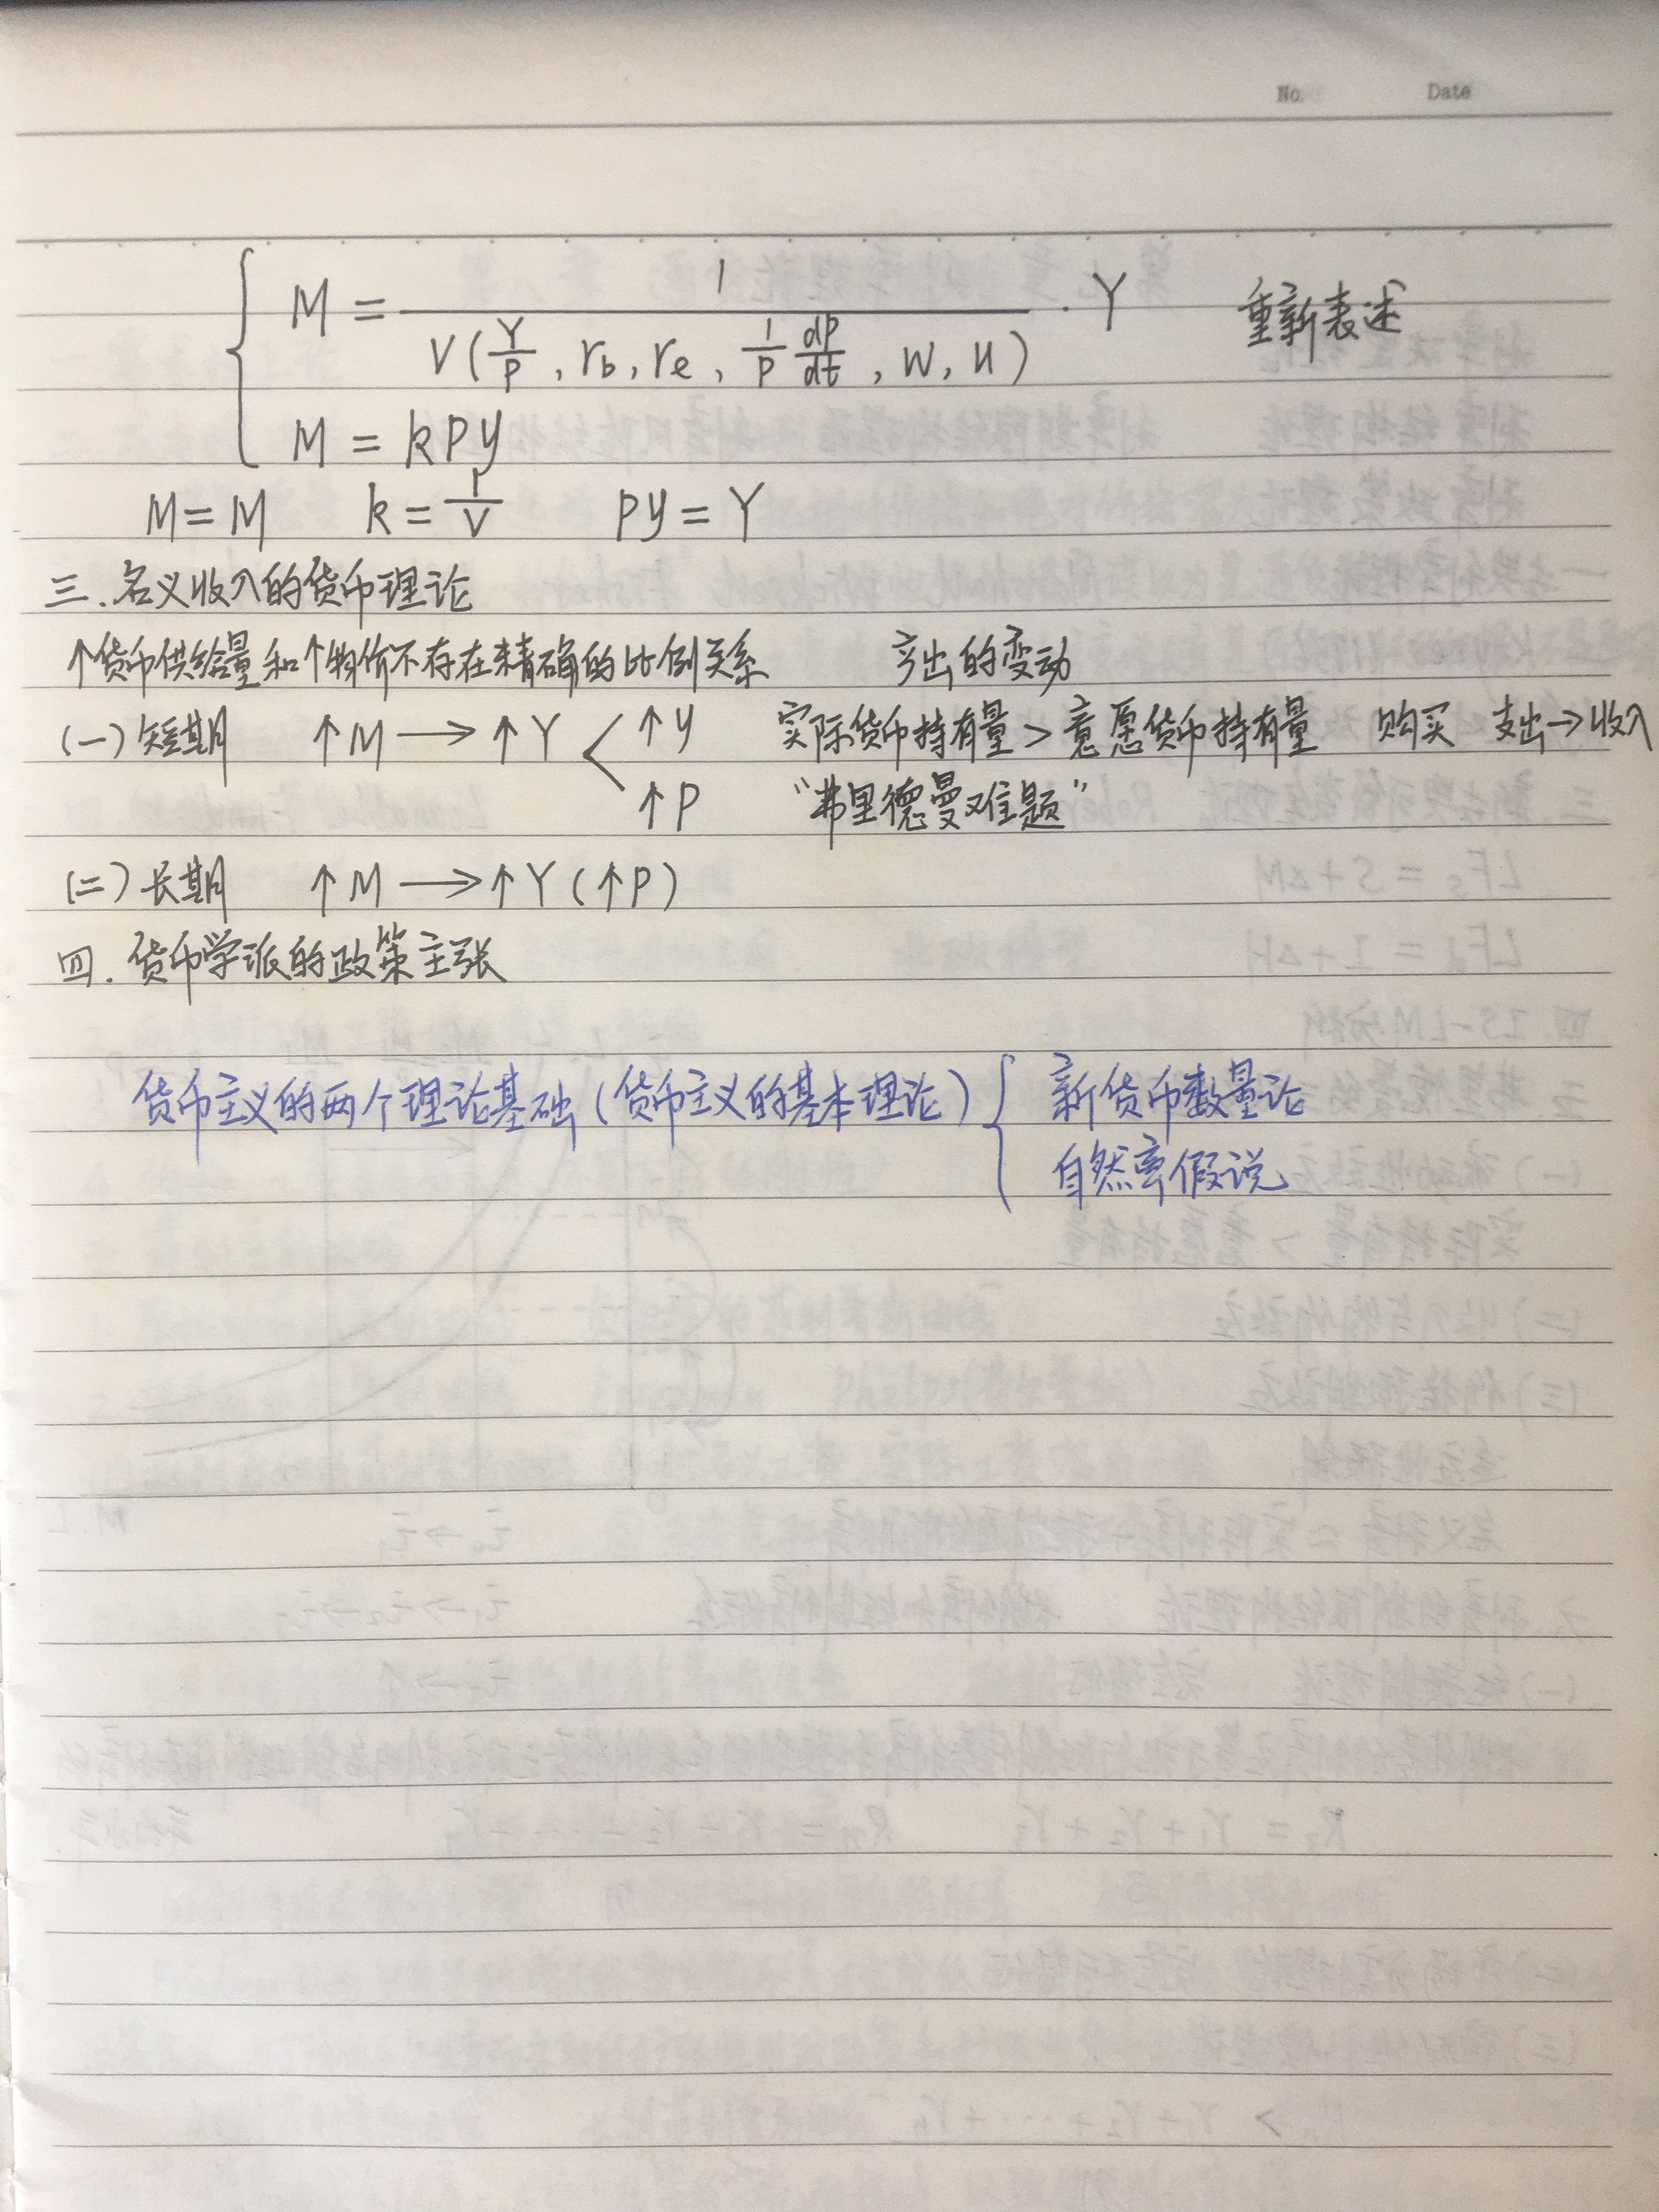 No. Date
M = 1 / V(Y/P, rb, re, 1/P dP/dt, w, u) · Y 重新表述
M = kPy
M = M k = 1/V Py = Y
三.名义收入的货币理论
↑货币供给量和↑物价不存在精确的比例关系 产出的变动
(一)短期 ↑M → ↑Y < ↑y 实际货币持有量 > 意愿货币持有量 购买 支出→收入
↑P “弗里德曼难题”
(二)长期 ↑M → ↑Y (↑P)
四.货币学派的政策主张
货币主义的两个理论基础(货币主义的基本理论) { 新货币数量论
自然率假说